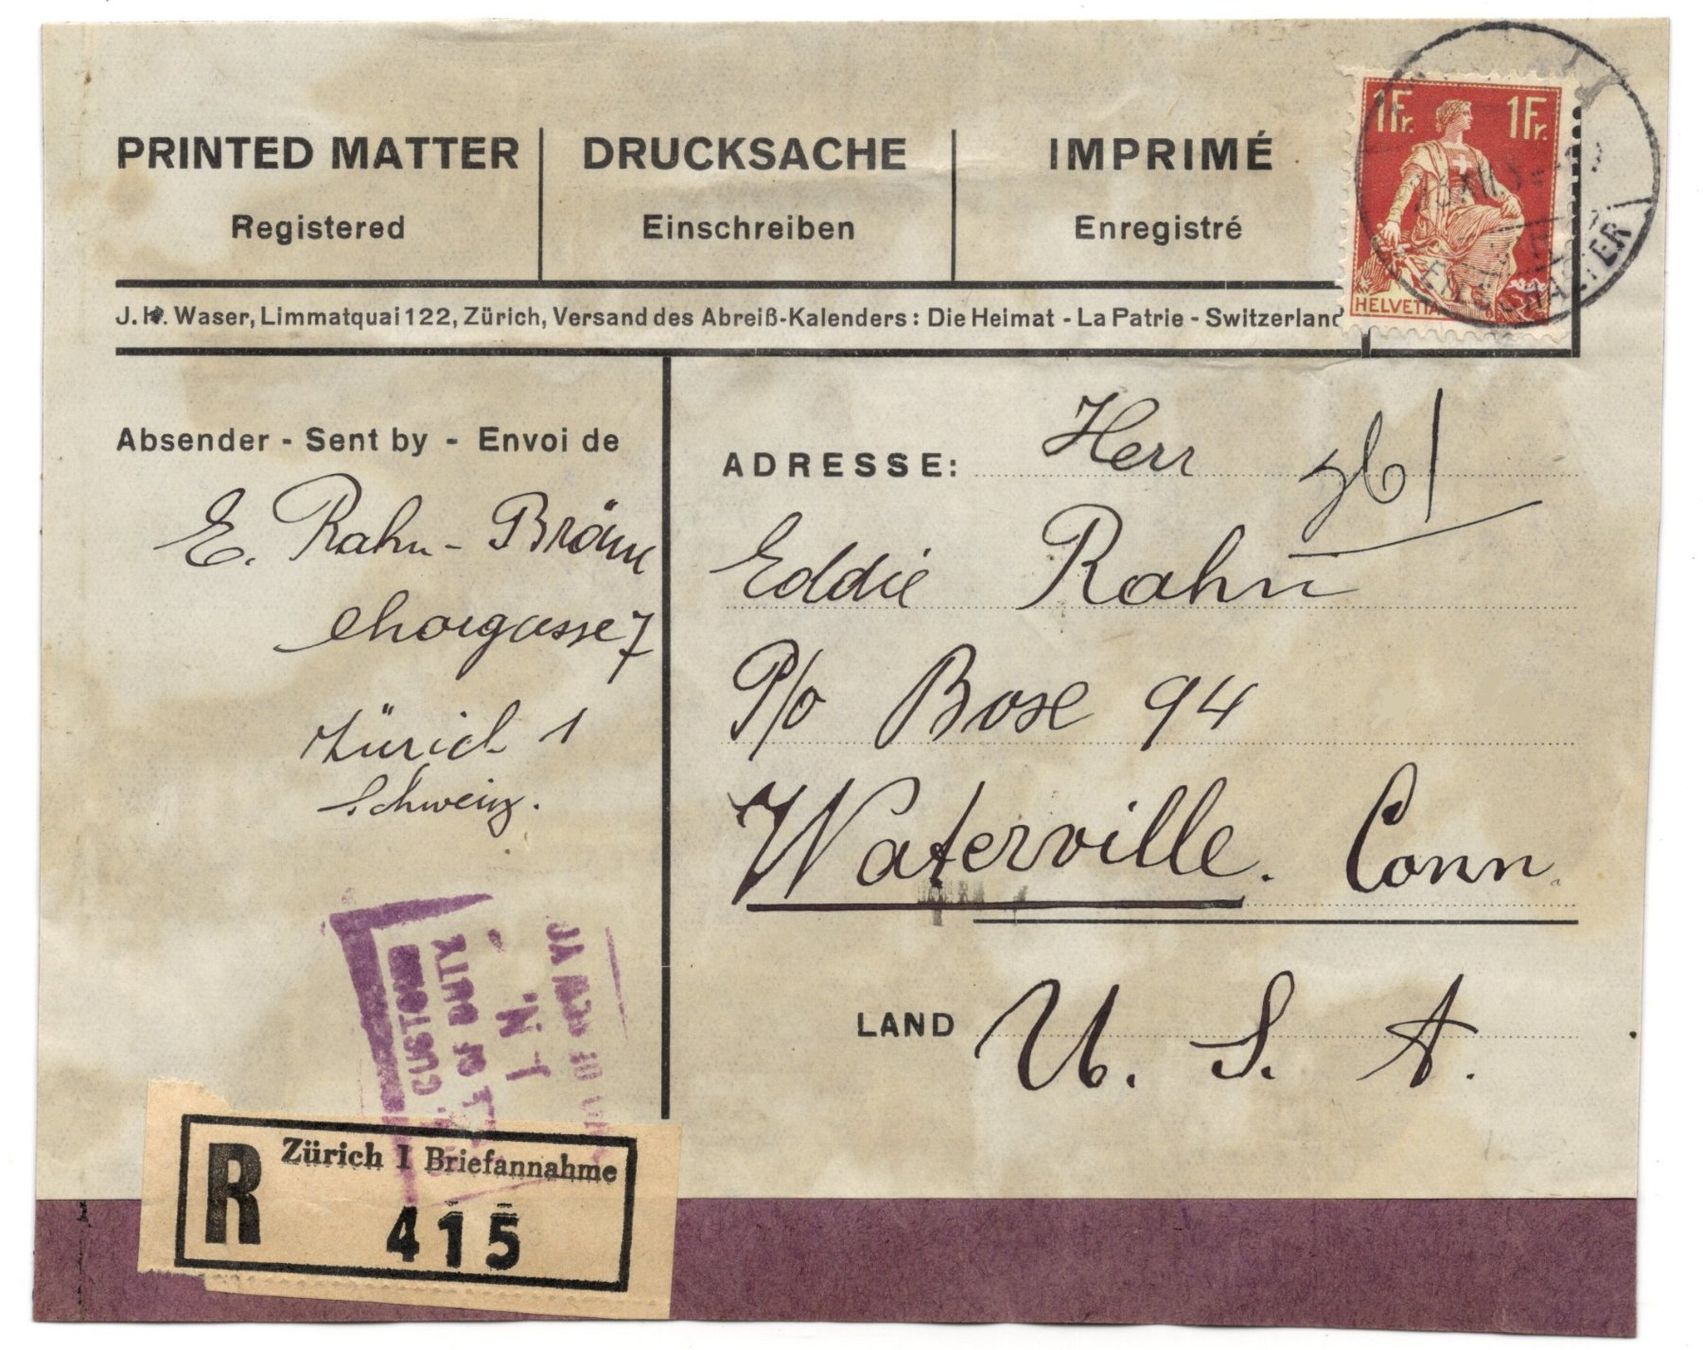 PRINTED MATTER DRUCKSACHE IMPRIMÉ
Registered Einschreiben Enregistré
1Fr. 1Fr.
HELVETIA
J. H. Waser, Limmatquai 122, Zürich, Versand des Abreiß-Kalenders: Die Heimat - La Patrie - Switzerland
Absender - Sent by - Envoi de
E. Rahn-
Chorgasse 7
Zürich 1
Schweiz.
ADRESSE: Herr
Eddie Rahn
P/o Bose 94
Waterville. Conn.
LAND U. S. A.
CUSTOMS
OF DUTY
N.
OF NEW
R Zürich 1 Briefannahme
415